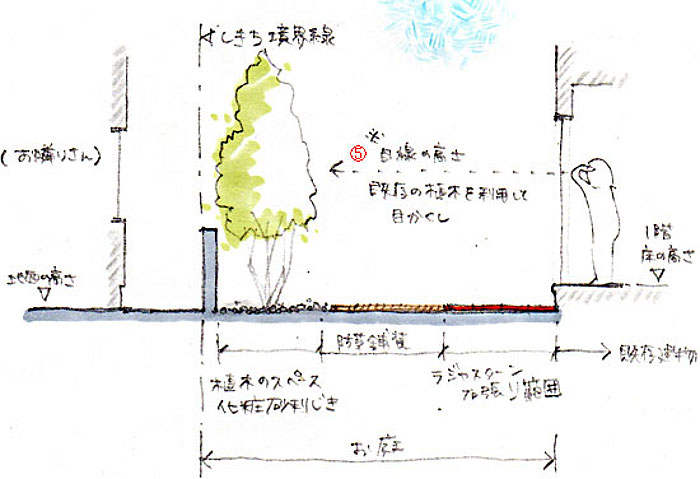 しきち境界線
(お隣りさん)
⑤
※
目線の高さ
既存の植木を利用して
目かくし
1階
床の高さ
地面の高さ
防草舗装
既存建物
植木のスペース
化粧砂利じき
ラジカスターン
石張り範囲
お庭